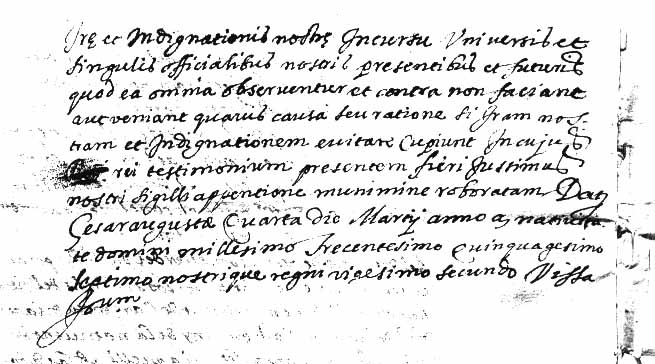 Irę et Indignationis nostrę Incursu Universis et
singulis officialibus nostris presentibus et futuris
quod ea omnia observentur et contra non faciant
aut veniant quavis causa seu ratione si Iram nos-
tram et Indignationem evitare Cupiunt In cujus
rei testimonium presentem fieri Jussimus
nostri sigilli appentione munimine roboratam Dat
Cesaraugustæ Quarta die Martij anno a nativita
te domini millesimo trecentesimo Quinquagesimo
septimo nostrique regni vigesimo secundo Vissa